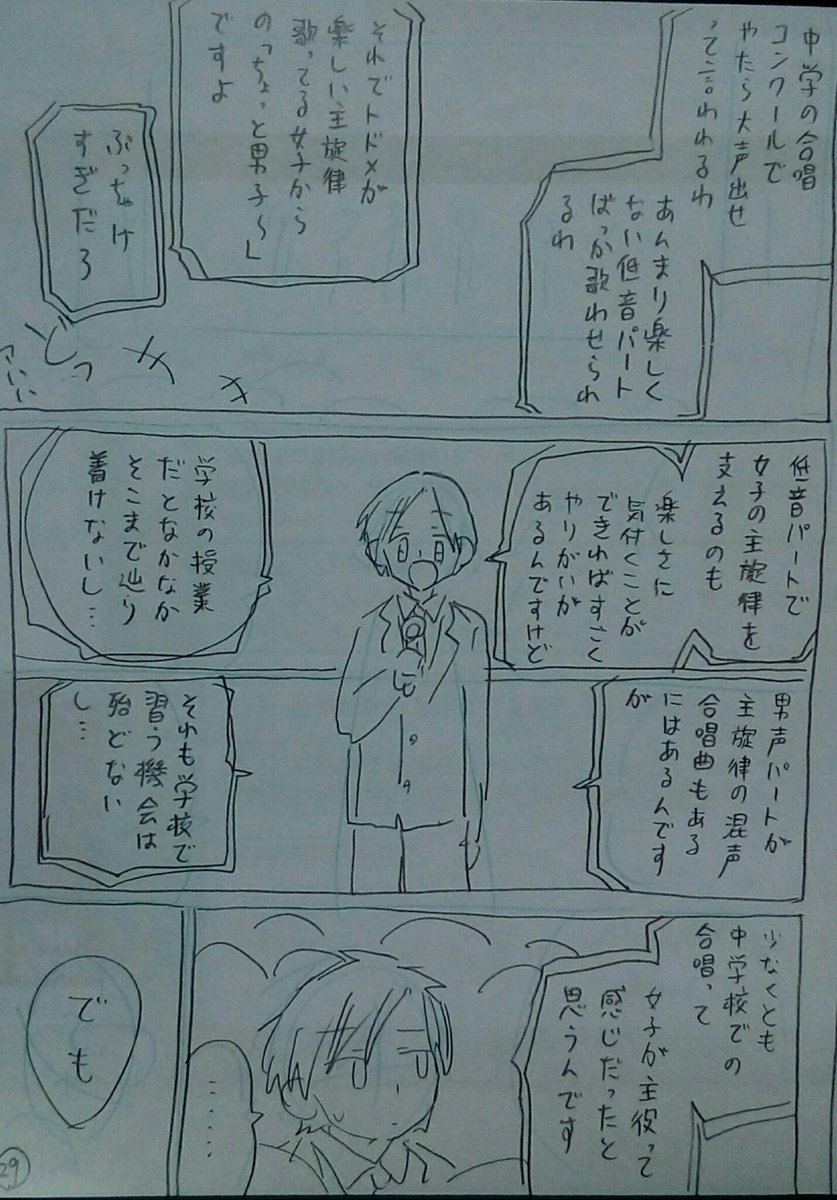 中学の合唱
コンクールで
やたら大声出せ
って言われるわ
あんまり楽しく
ない低音パート
ばっか歌わせられ
るわ
それでトドメが
楽しい主旋律
歌ってる女子から
の「ちょっと男子〜」
ですよ
ぶっちゃけ
すぎだろ
どっ
低音パートで
女子の主旋律を
支えるのも
楽しさに
気付くことが
できればすごく
やりがいが
あるんですけど
学校の授業
だとなかなか
そこまで辿り
着けないし…
男声パートが
主旋律の混声
合唱曲もある
にはあるんです
が
それも学校で
習う機会は
殆どない
し…
少なくとも
中学校での
合唱って
女子が主役って
感じだったと
思うんです
……
でも
29